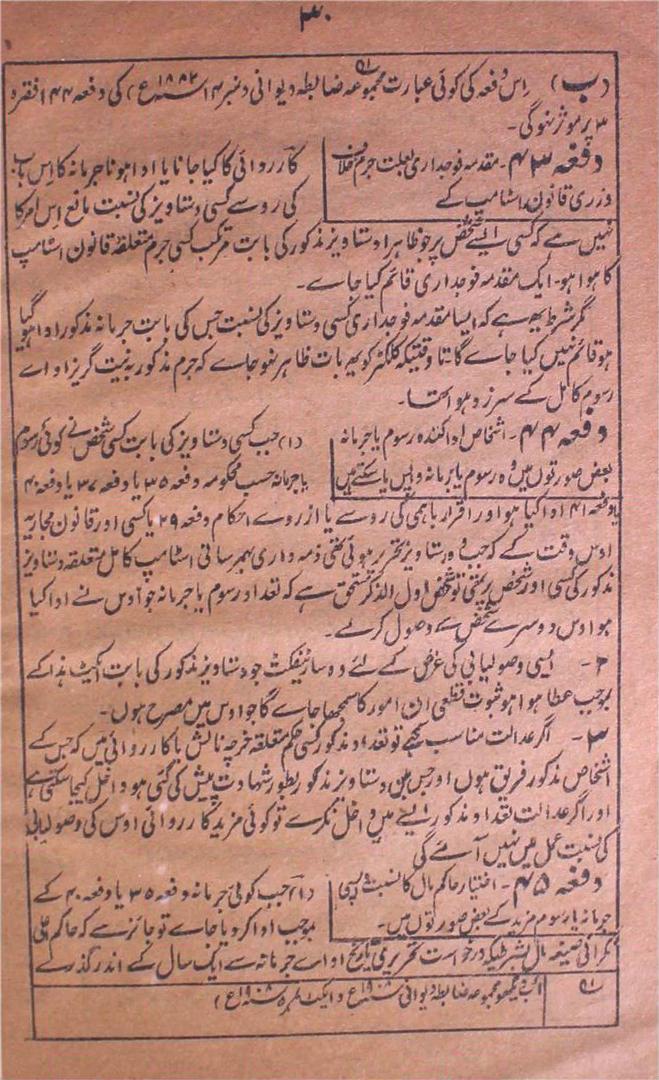 ۳۰
(ب) اِس دفعہ کی کوئی عبارت مجموعہ ضابطہ دیوانی (نمبر ۱۴ ۱۸۸۲ع) کی دفعہ ۱۴۴ فقرہ
۳ پر موثر نہوگی۔
دفعہ ۴۳۔ مقدمہ فوجداری بعلت جرم خلاف
ورزی قانون اسٹامپ کے
کارروائی کا کیا جانا یا ادا ہونا جرمانہ کا اِس باب
کی رو سے کسی دستاویز کی نسبت مانع اِس امر کا
نہیں ہے کہ کسی ایسے شخص پر جو ظاہرا دستاویز مذکور کی بابت مرتکب کسی جرم متعلقہ قانون اسٹامپ
کا ہوا ہو۔ ایک مقدمہ فوجداری قائم کیا جاے۔
مگر شرط یہہ ہے کہ ایسا مقدمہ فوجداری کسی دستاویز کی نسبت جس کی بابت جرمانہ مذکور ادا ہو گیا
ہو قائم نہیں کیا جاے گا تاوقتیکہ کلکٹر کو یہہ بات ظاہر نہو جاے کہ جرم مذکور بہ نیت گریز از اداے
رسوم کامل کے سرزد ہوا تھا۔
دفعہ ۴۴۔ اشخاص ادا کنندہ رسوم یا جرمانہ
بعض صورتوں میں وہ رسوم یا جرمانہ واپس پا سکتے ہیں
(۱) جب کسی دستاویز کی بابت کسی شخص نے کوئی رسوم
یا جرمانہ حسب محکومہ دفعہ ۳۵ یا دفعہ ۳۷ یا دفعہ ۴۰
یا دفعہ ۴۱ ادا کیا ہو اور اقرار باہمی کی رو سے یا از روے احکام دفعہ ۲۹ یا کسی اور قانون مجاریہ
اوس وقت کے کہ جب وہ دستاویز تحریر ہوئی تھی ذمہ واری بہمرسانی اسٹامپ کامل متعلقہ دستاویز
مذکور کی کسی اور شخص پر تھی تو شخص اول الذکر مستحق ہے کہ تعداد رسوم یا جرمانہ جو اوس نے ادا کیا
ہو اوس دوسرے شخص سے وصول کرلے۔
۲۔ ایسی وصولیابی کی غرض کے لئے وہ سارٹیفکٹ جو دستاویز مذکور کی بابت ایکٹ ہذا کے
بموجب عطا ہوا ہو ثبوت قطعی ان امور کا سمجھا جاے گا جو اوس میں مصرح ہوں۔
۳۔ اگر عدالت مناسب سمجھے تو تعداد مذکور کسی حکم متعلقہ خرچہ نالش یا کارروائی میں کہ جس کے
اشخاص مذکور فریق ہوں اور جس میں دستاویز مذکور بطور شہادت پیش کی گئی ہو داخل کیجا سکتی ہے
اور اگر عدالت تعداد مذکور ایسے میں داخل نکرے تو کوئی مزید کارروائی اوس کی وصولیابی
کی نسبت عمل میں نہیں آئے گی
دفعہ ۴۵۔ اختیار حاکم مال کا نسبت واپسی
جرمانہ یا رسوم مزید کے بعض صورتوں میں۔
(۱) جب کوئی جرمانہ دفعہ ۳۵ یا دفعہ ۴۰ کے
بموجب ادا کر دیا جاے تو جائز ہے کہ حاکم اعلی
نگرانی صیغہ مال بشرطیکہ درخواست تحریری تاریخ اداے جرمانہ سے ایک سال کے اندر گذرے
اب دیکھو مجموعہ ضابطہ دیوانی ۱۹۰۸ع (ایکٹ نمبر ۵ ۱۹۰۸ع)